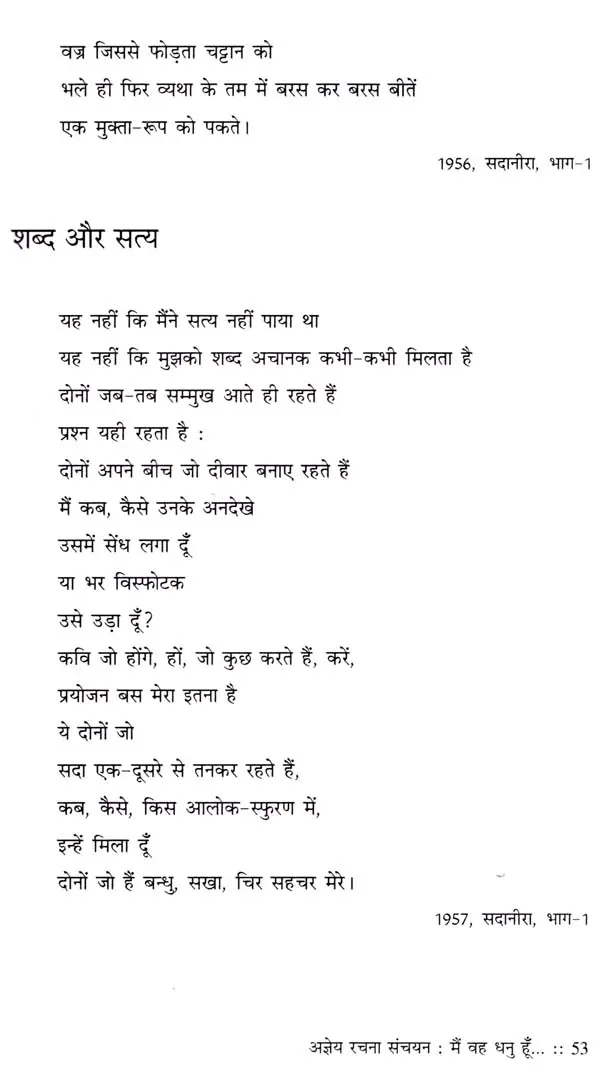 वज्र जिससे फोड़ता चट्टान को
भले ही फिर व्यथा के तम में बरस कर बरस बीतें
एक मुक्ता-रूप को पकते।
1956, सदानीरा, भाग-1
शब्द और सत्य
यह नहीं कि मैंने सत्य नहीं पाया था
यह नहीं कि मुझको शब्द अचानक कभी-कभी मिलता है
दोनों जब-तब सम्मुख आते ही रहते हैं
प्रश्न यही रहता है :
दोनों अपने बीच जो दीवार बनाए रहते हैं
मैं कब, कैसे उनके अनदेखे
उसमें सेंध लगा दूँ
या भर विस्फोटक
उसे उड़ा दूँ?
कवि जो होंगे, हों, जो कुछ करते हैं, करें,
प्रयोजन बस मेरा इतना है
ये दोनों जो
सदा एक-दूसरे से तनकर रहते हैं,
कब, कैसे, किस आलोक-स्फुरण में,
इन्हें मिला दूँ
दोनों जो हैं बन्धु, सखा, चिर सहचर मेरे।
1957, सदानीरा, भाग-1
अज्ञेय रचना संचयन : मैं वह धनु हूँ... :: 53